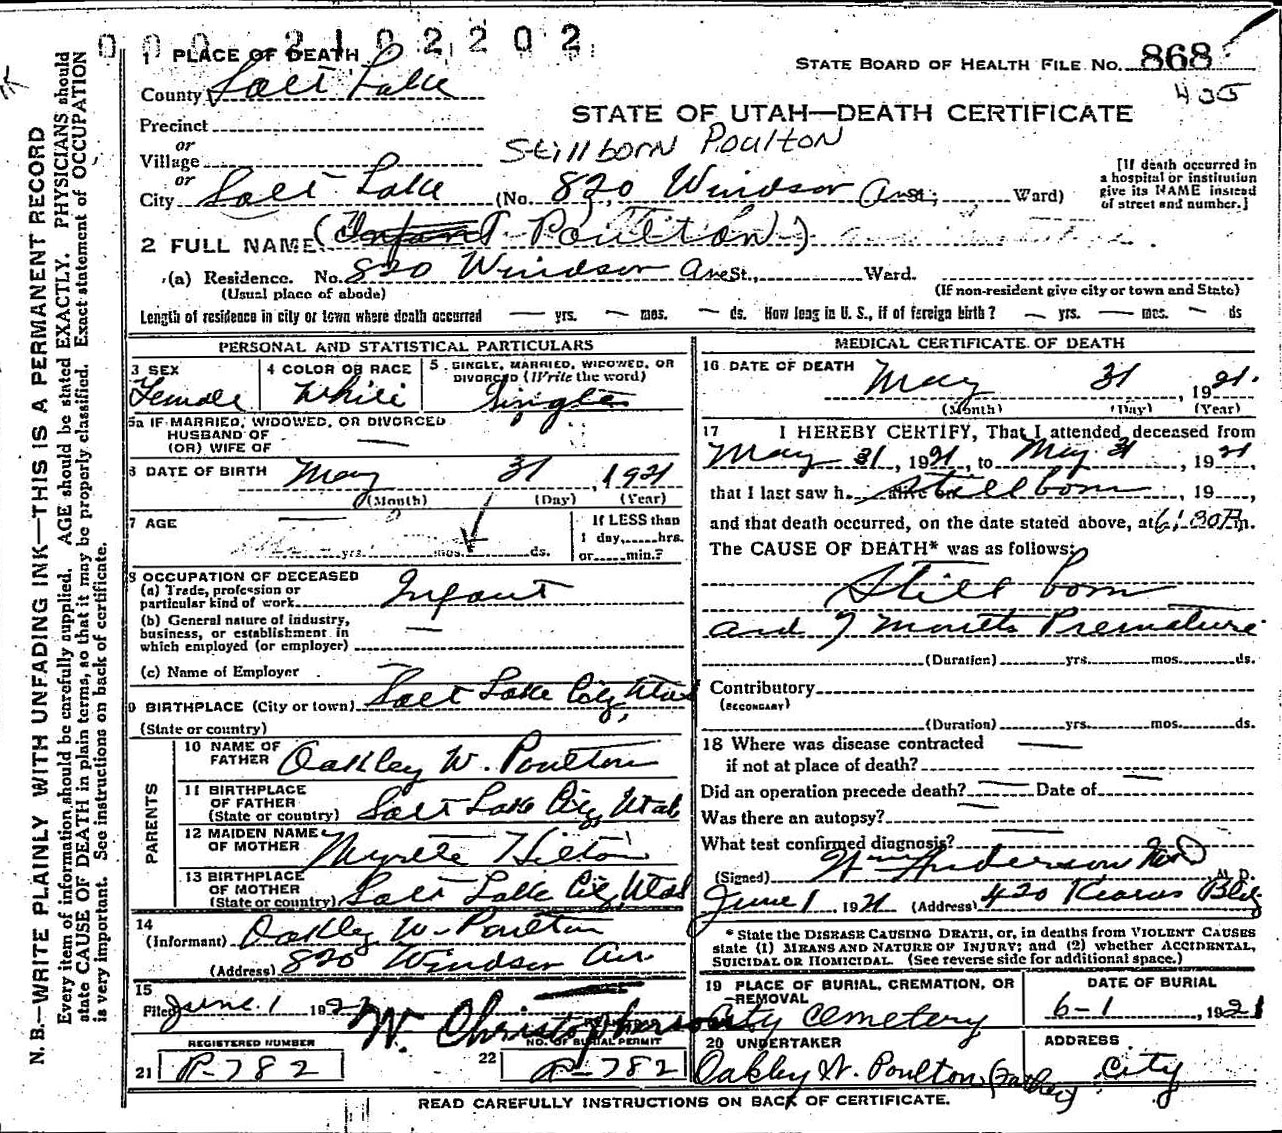 0 0 0 2 1 0 2 2 0 2
1 PLACE OF DEATH
STATE BOARD OF HEALTH FILE NO. 868
County Salt Lake
435
STATE OF UTAH—DEATH CERTIFICATE
Precinct
or
Village
Stillborn Poulton
or
City Salt Lake (No. 820 Windsor Ave St; Ward)
[If death occurred in a hospital or institution give its NAME instead of street and number.]
2 FULL NAME (Infant Poulton)
(a) Residence. No. 820 Windsor Ave St., Ward.
(Usual place of abode) (If non-resident give city or town and State)
Length of residence in city or town where death occurred — yrs. — mos. — ds. How long in U. S., if of foreign birth? — yrs. — mos. — ds
PERSONAL AND STATISTICAL PARTICULARS
3 SEX Female
4 COLOR OR RACE White
5 SINGLE, MARRIED, WIDOWED, OR DIVORCED (Write the word) Single
5a IF MARRIED, WIDOWED, OR DIVORCED
HUSBAND OF
(OR) WIFE OF —
6 DATE OF BIRTH May 31, 1921
(Month) (Day) (Year)
7 AGE — yrs. mos. ds.
If LESS than
1 day, hrs.
or min.?
8 OCCUPATION OF DECEASED
(a) Trade, profession or
particular kind of work Infant
(b) General nature of industry,
business, or establishment in
which employed (or employer) —
(c) Name of Employer —
9 BIRTHPLACE (City or town) Salt Lake City, Utah
(State or country)
PARENTS
10 NAME OF FATHER Oakley W. Poulton
11 BIRTHPLACE OF FATHER (State or country) Salt Lake City, Utah
12 MAIDEN NAME OF MOTHER Myrtle Hilton
13 BIRTHPLACE OF MOTHER (State or country) Salt Lake City, Utah
14
(Informant) Oakley W. Poulton
(Address) 820 Windsor Av.
15
Filed June 1 192 W. Christopherson
REGISTERED NUMBER
21 P-782
NO. OF BURIAL PERMIT
22 P-782
MEDICAL CERTIFICATE OF DEATH
16 DATE OF DEATH May 31, 1921.
(Month) (Day) (Year)
17 I HEREBY CERTIFY, That I attended deceased from
May 31, 1921, to May 31, 1921
that I last saw h alive on Stillborn, 19,
and that death occurred, on the date stated above, at 6:30 A m.
The CAUSE OF DEATH* was as follows:
Still born
and 7 months Premature
(Duration) yrs. mos. ds.
Contributory
(SECONDARY)
(Duration) yrs. mos. ds.
18 Where was disease contracted —
if not at place of death? —
Did an operation precede death? — Date of —
Was there an autopsy? —
What test confirmed diagnosis? —
(Signed) Wm Anderson MD M. D.
June 1 1921 (Address) 420 Kearns Bldg
* State the DISEASE CAUSING DEATH, or, in deaths from VIOLENT CAUSES
state (1) MEANS AND NATURE OF INJURY; and (2) whether ACCIDENTAL,
SUICIDAL OR HOMICIDAL. (See reverse side for additional space.)
19 PLACE OF BURIAL, CREMATION, OR REMOVAL City Cemetery
DATE OF BURIAL
6-1, 1921
20 UNDERTAKER
Oakley W. Poulton (Father)
ADDRESS
City
READ CAREFULLY INSTRUCTIONS ON BACK OF CERTIFICATE.
N. B.—WRITE PLAINLY WITH UNFADING INK—THIS IS A PERMANENT RECORD
Every item of information should be carefully supplied. AGE should be stated EXACTLY. PHYSICIANS should
state CAUSE OF DEATH in plain terms, so that it may be properly classified. Exact statement of OCCUPATION
is very important. See instructions on back of certificate.